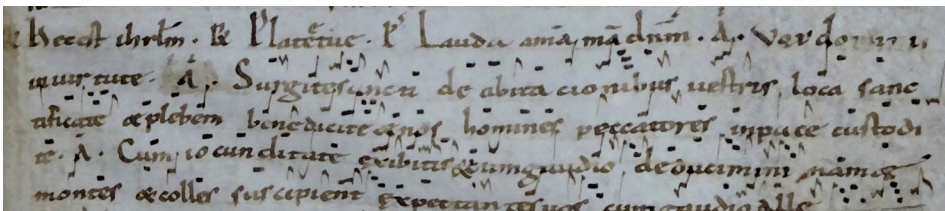 hec est ihrlm. R Plateę tuę. P Lauda anima mā dnm. A. Uerbo dnī
in uirtute. A. Surgite sancti de abita cionibus uestris loca sanc
tificate & plebem benedicite & nos homines peccatores in pace custodi
te. A. Cum io cunditate exibitis & cum gaudio deducimini nam &
montes & colles suscipient expectan tes uos cum gaudio alle